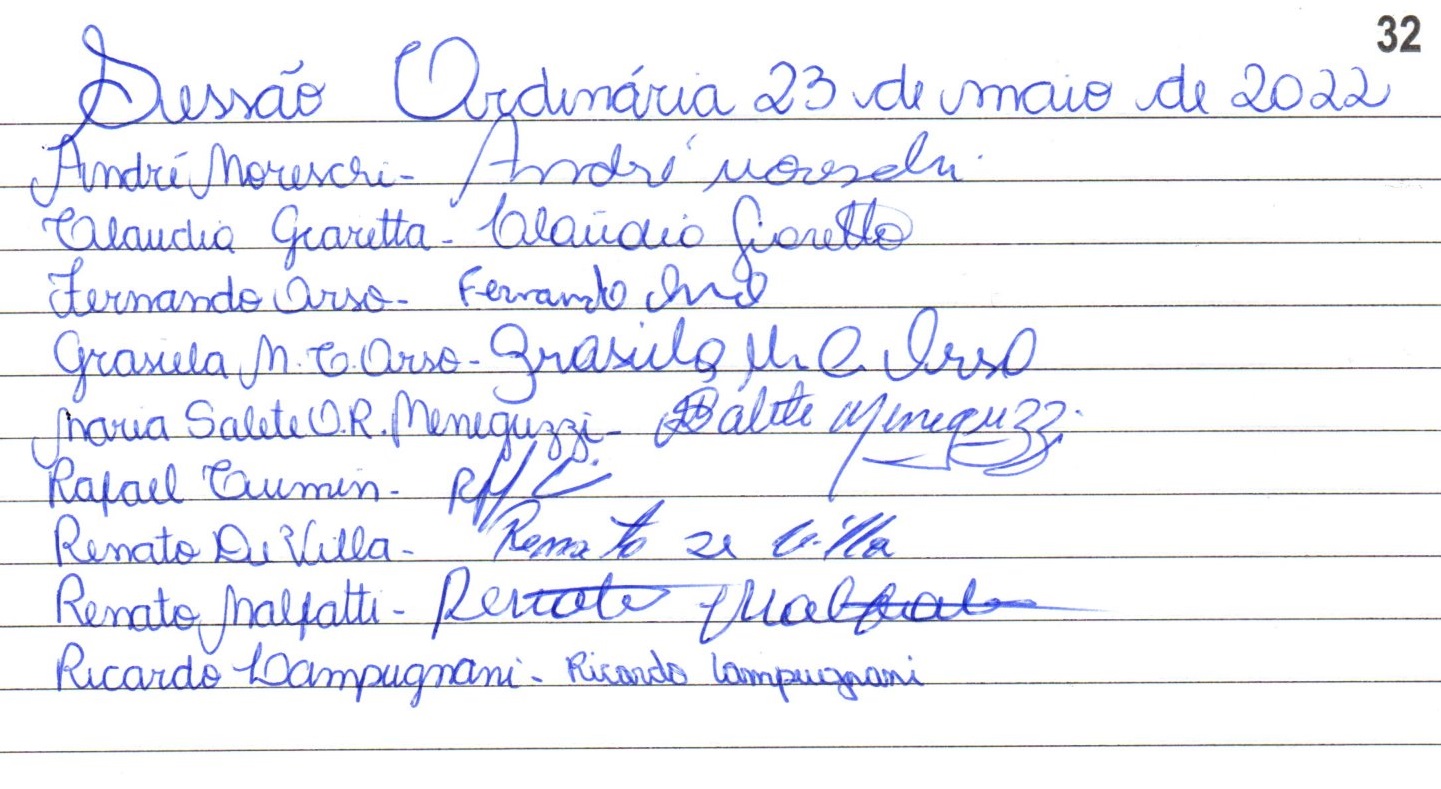 32
Sessão Ordinária 23 de maio de 2022
André Moreschi - André Moreschi
Claudia Giaretta - Claudio Giaretta
Fernando Orso - Fernando Orso
Grasiela M. C. Orso - Grasiela M. C. Orso
Maria Salete O.R. Meneguzzi - Salete Meneguzzi
Rafael Cumin -
Renato De Villa - Renato De Villa
Renato Malfatti - Renato Malfatti
Ricardo Lampugnani - Ricardo Lampugnani